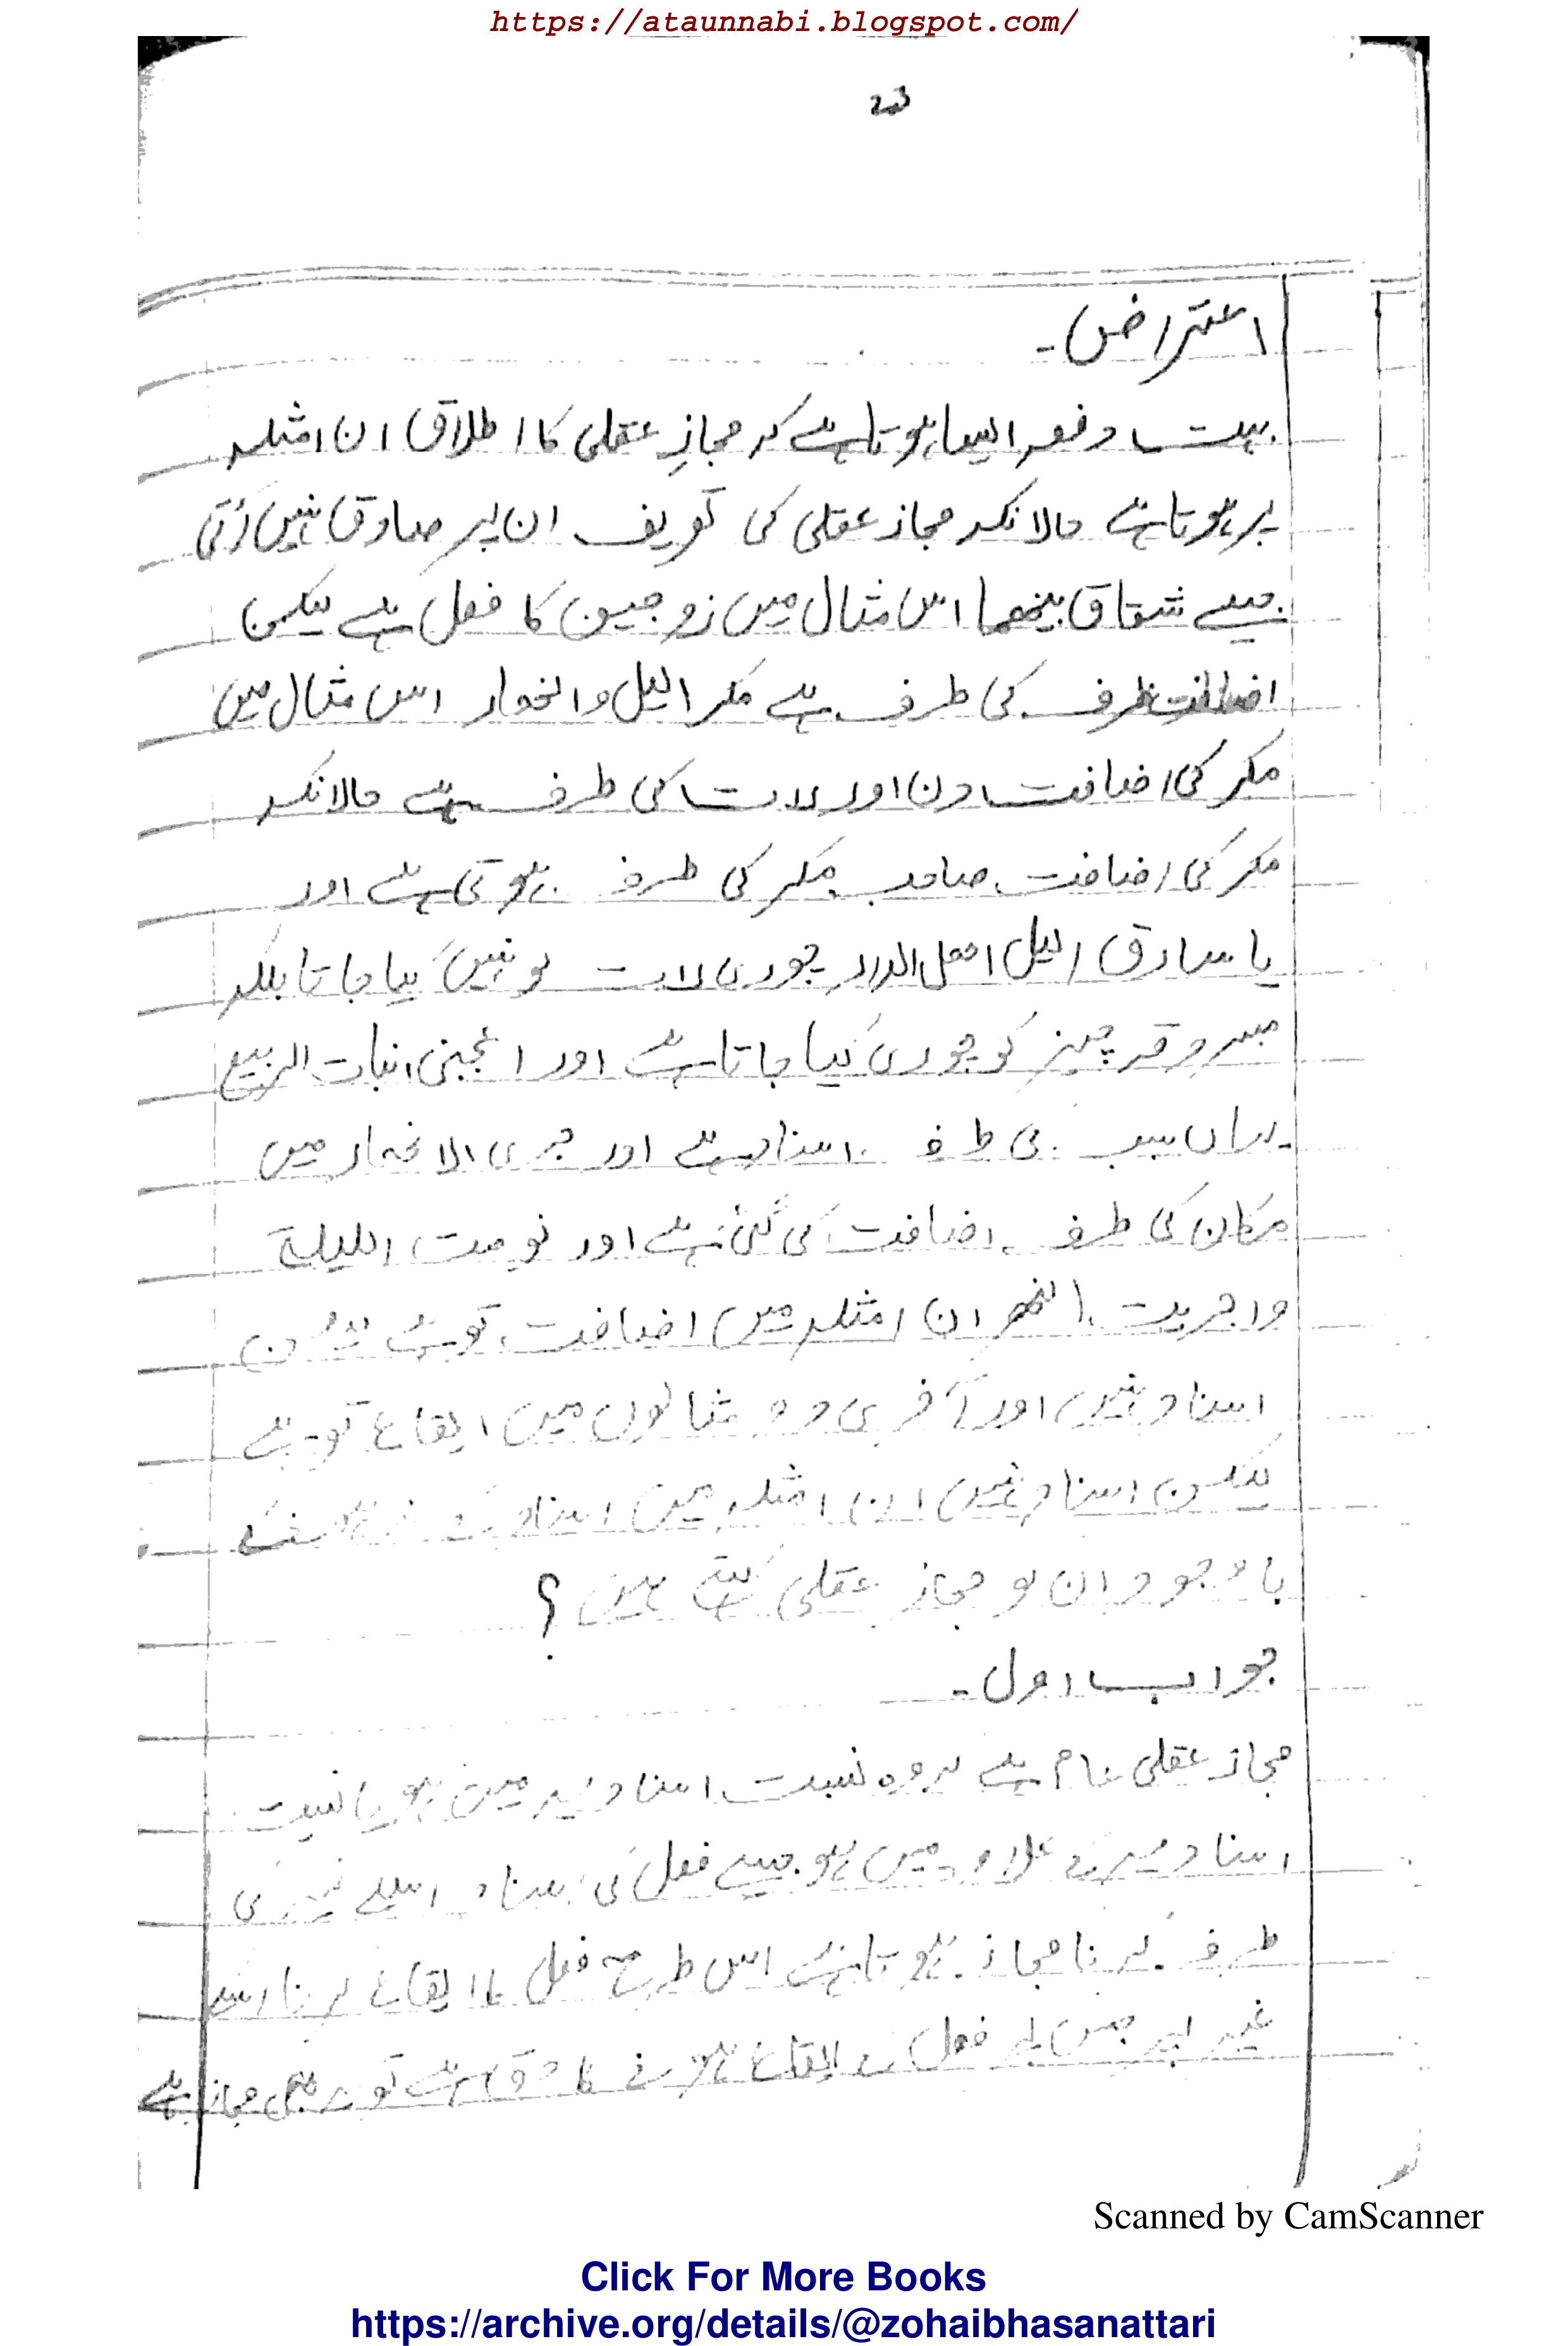 https://ataunnabi.blogspot.com/
اعتراض۔
بہت دفعہ ایسا ہوتا ہے کہ مجازِ عقلی کا اطلاق ان امثلہ
پر ہوتا ہے حالانکہ مجاز عقلی کی تعریف ان پر صادق نہیں آتی
جیسے شقاق بینھما اس مثال میں زوجین کا فعل ہے لیکن
اضافت ظرف کی طرف ہے مکر الیل والنھار اس مثال میں
مکر کی اضافت دن اور رات کی طرف ہے حالانکہ
مکر کی اضافت صاحب مکر کی طرف ہوتی ہے اور
یا سارق الیل اھل الدار چوری رات کو نہیں کیا جاتا بلکہ
مسروقہ چیز کو چوری کیا جاتا ہے اور اعجبنی انبات الربیع
یہاں سبب کی طرف اسناد ہے اور جری الانھار میں
مکان کی طرف اضافت کی گئی ہے اور نومت اللیلۃ
واجریت النھر ان امثلہ میں اضافت تو ہے لیکن
اسناد نہیں اور آخری دو مثالوں میں ایقاع تو ہے
لیکن اسناد نہیں ان امثلہ میں اسناد نہ ہونے کے
باوجود ان کو مجاز عقلی کہتے ہیں؟
جواب اول۔
مجاز عقلی عام ہے کہ وہ نسبت اسنادیہ میں ہو یا نسبت
اسنادیہ کے علاوہ میں ہو جیسے فعل کی اسناد اسکے غیر کی
طرف کرنا مجاز ہوتا ہے اس طرح فعل کا ایقاع کرنا اسکے
غیر پر جس پر فعل کے ایقاع ہونے کا حق ہے تو یہ بھی مجاز ہے
Scanned by CamScanner
Click For More Books
https://archive.org/details/@zohaibhasanattari